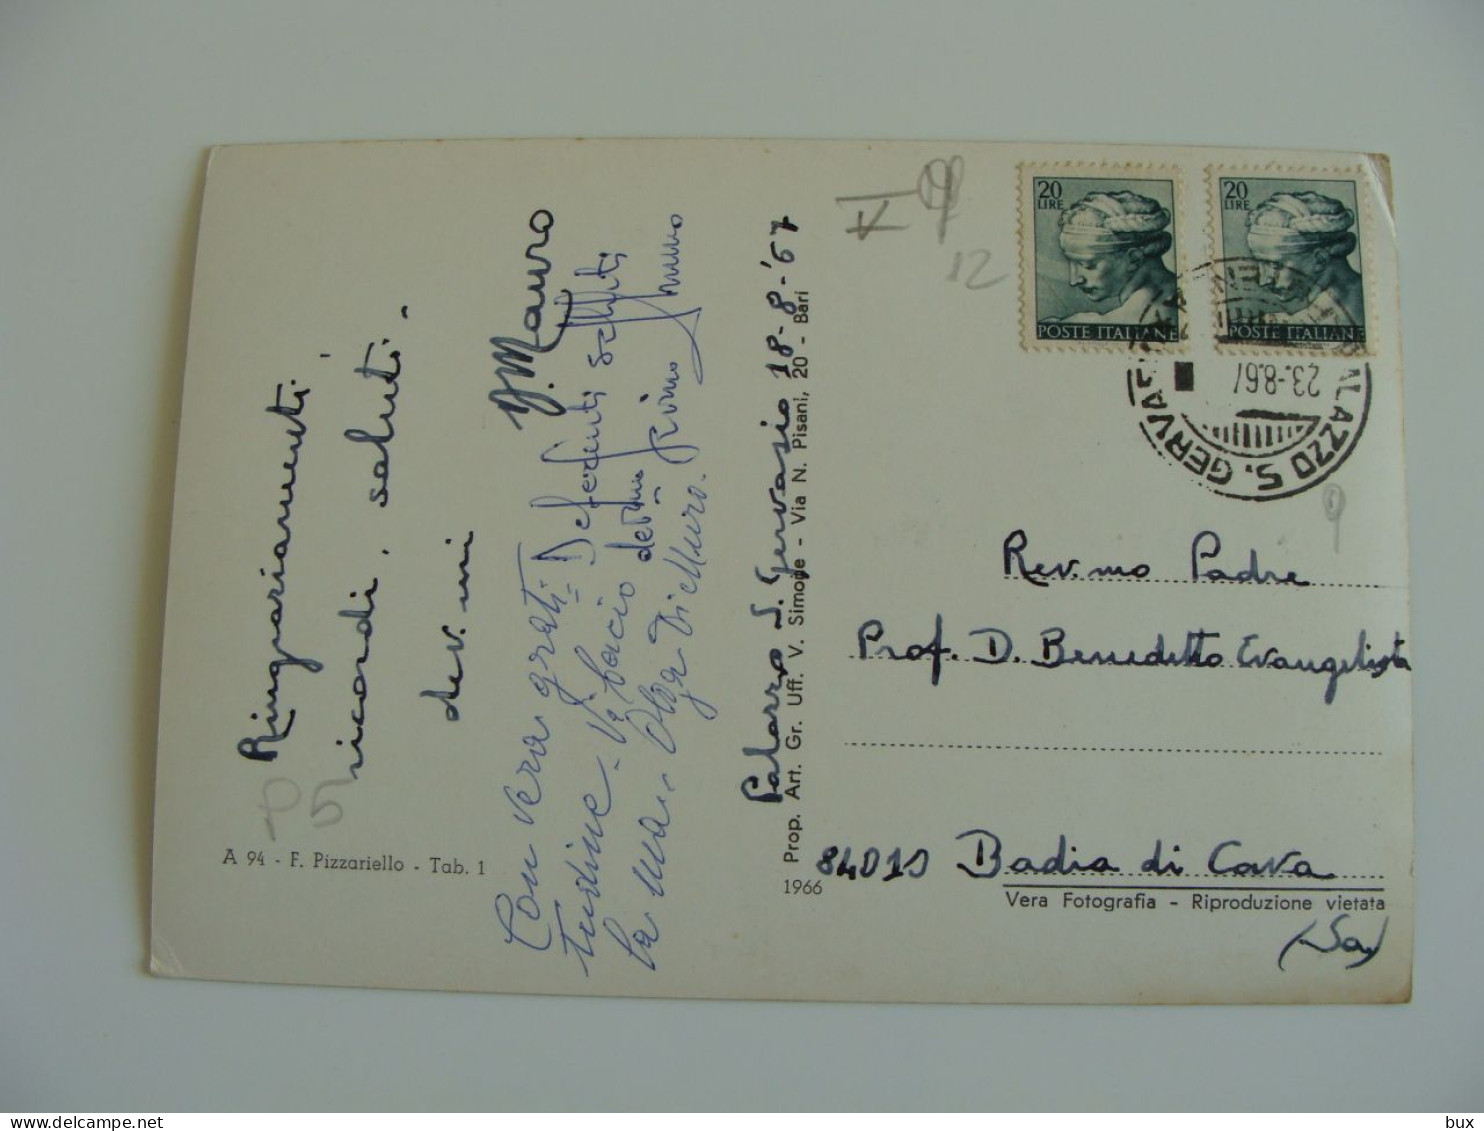 Ringraziamenti
ricordi, saluti.
dev.mi
G. Mauro
Con vera grati-
tudine - Vi bacio
la mano, Olga Di Mauro.
Deferenti saluti
dev.mo
Palazzo S. Gervasio 18-8-'67
Prop. Art. Gr. Uff. V. Simone - Via N. Pisani, 20 - Bari
1966
A 94 - F. Pizzariello - Tab. 1
V
12
20
LIRE
POSTE ITALIANE
20
LIRE
POSTE ITALIANE
PALAZZO S. GERVASIO
23-8.67
Rev.mo Padre
Prof. D. Benedetto Evangelista
84010 Badia di Cava
Vera Fotografia - Riproduzione vietata
(Sa)
bux